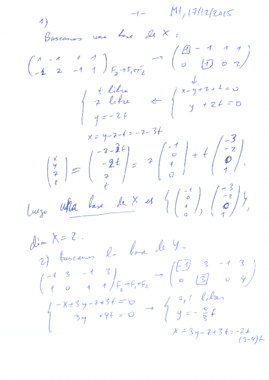 -1- MI, 17/12/2015
1)
Buscamos una base de X:
(1 -1 1 1
-1 2 -1 1) F₂→F₁+F₂ → (1 -1 1 1
0 1 0 2)
{ t libre
z libre
y = -2t ← { x-y+z+t=0
y+2t=0
x = y-z-t = -z-3t
(x y z t) = (-z-3t -2t z t) = z (-1 0 1 0) + t (-3 -2 0 1).
Luego una base de X es {(-1 0 1 0), (-3 -2 0 1)},
dim X = 2.
2) Buscamos la base de Y.
(-1 3 -1 3
1 0 1 1) F₂→F₁+F₂ → (-1 3 -1 3
0 3 0 4)
{ -x+3y-z+3t=0
3y+4t=0 → { z,t libres
y = -4/3 t
x = 3y-z+3t = -z